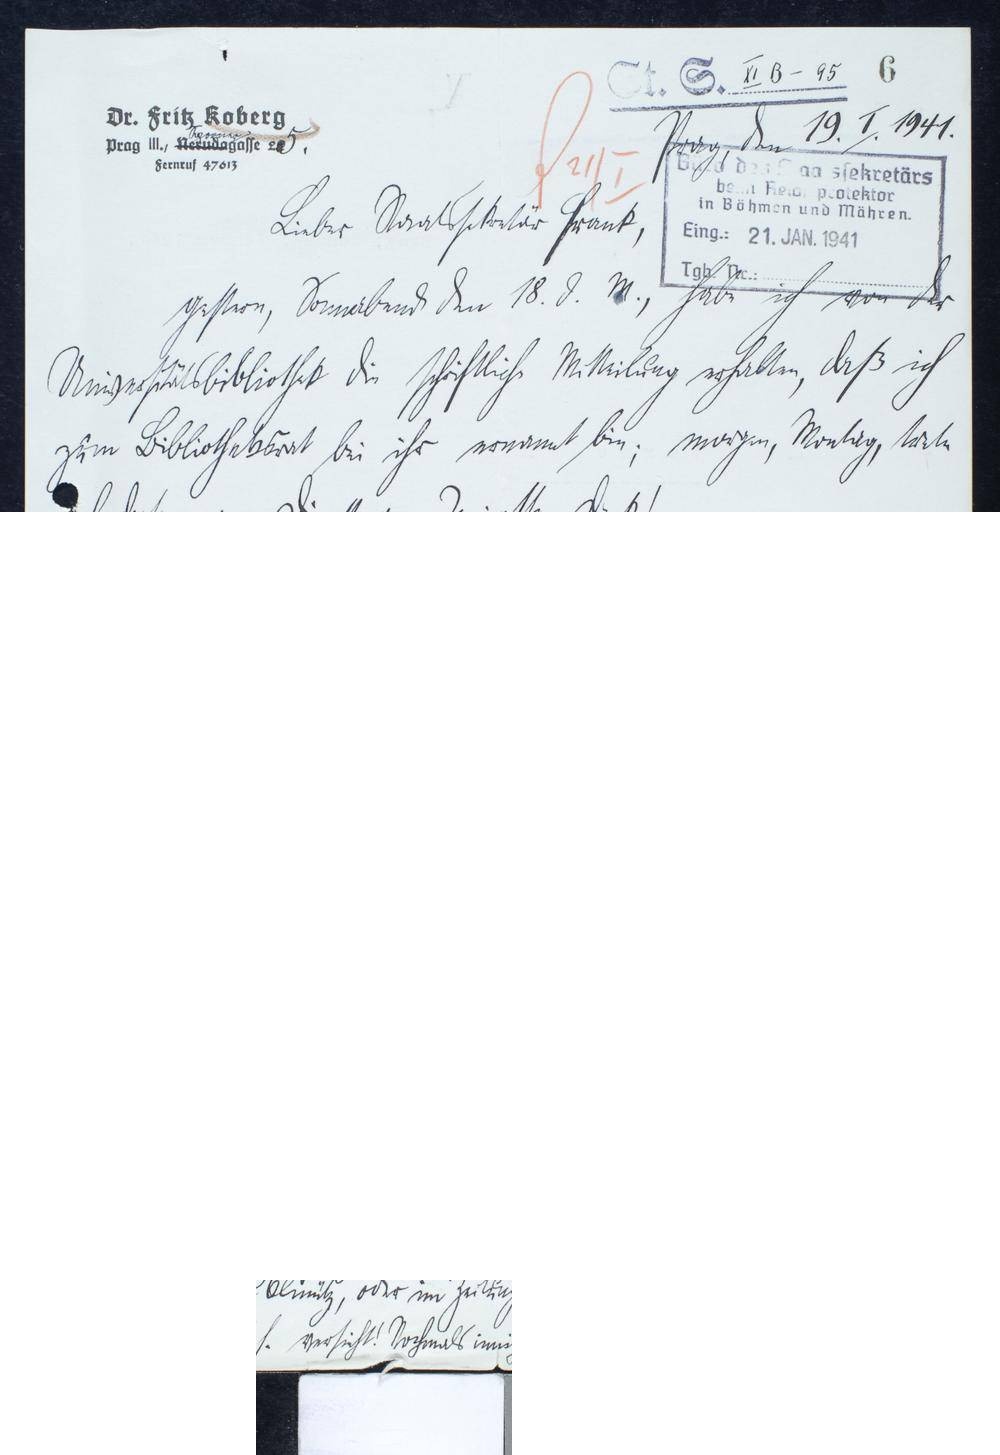 St. S. XI B - 95 6
Dr. Fritz Koberg
Prag III., Nerudagasse 5.
Fernruf 47613
Prag, den 19. I. 1941.
21/I
Büro des Staatssekretärs
beim Reichsprotektor
in Böhmen und Mähren.
Eing.: 21. JAN. 1941
Tgb. Nr.:
Lieber Staatssekretär Frank,
gestern, Sonnabend den 18. d. M., habe ich von der
Universitätsbibliothek die schriftliche Mitteilung erhalten, daß ich
zum Bibliotheksrat bei ihr ernannt bin; morgen, Montag, trete
Olmütz, oder im Zeitung
versieht! Nochmals